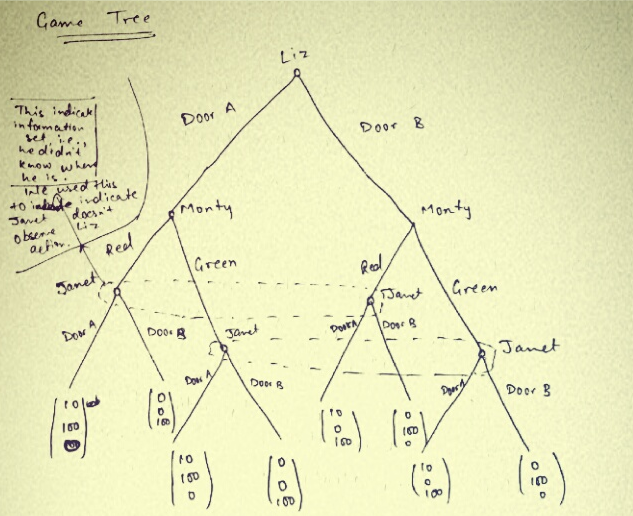 Game Tree
Liz
Door A
Door B
This indicate
information
set i.e.,
he didn't
know where
he is.
We used this
to indicate
Janet doesn't
observe Liz
action.
Monty
Monty
Red
Green
Red
Green
Janet
Janet
Janet
Janet
Door A
Door B
Door A
Door B
Door A
Door B
Door A
Door B
10
100
0
0
100
10
100
0
0
0
100
10
0
100
0
100
0
10
0
100
0
100
0